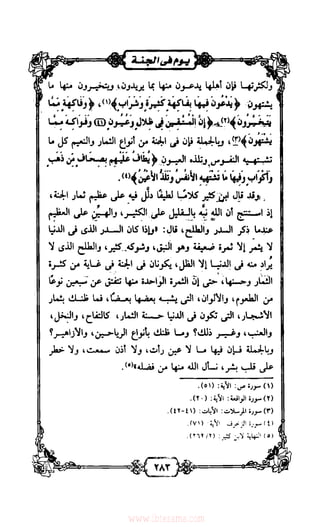 يوم في الجنة
ولكثرتها فإن أهلها يدعون منها بما يريدون، ويتخيرون منها ما
يشتهون ﴿يَدْعُونَ فِيهَا بِفَاكِهَةٍ كَثِيرَةٍ وَشَرَابٍ﴾(١)، ﴿وَفَاكِهَةٍ مِّمَّا
يَتَخَيَّرُونَ﴾(٢)، ﴿إِنَّ الْمُتَّقِينَ فِي ظِلَالٍ وَعُيُونٍ (٤١) وَفَوَاكِهَ مِمَّا
يَشْتَهُونَ﴾(٣)، وبالجملة فإن في الجنة من أنواع الثمار والنعيم كل ما
تشتهيه النفوس وتلذه العيون ﴿يُطَافُ عَلَيْهِم بِصِحَافٍ مِّن ذَهَبٍ
وَأَكْوَابٍ وَفِيهَا مَا تَشْتَهِيهِ الْأَنفُسُ وَتَلَذُّ الْأَعْيُنُ﴾(٤).
وقد قال ابن كثير كلامًا لطيفًا دلَّل فيه على عظم ثمار الجنة،
إذ استنتج أن الله نبه بالقليل على الكثير، والهين على العظيم
عندما ذكر السدر والطلح، قال: «وإذا كان السدر الذى فى الدنيا
لا يثمر إلا ثمرة ضعيفة وهو النبق، وشوكه كثير، والطلح الذى لا
يُراد منه فى الدنيا إلا الظل، يكونان فى الجنة فى غاية من كثرة
الثمار وحسنها، حتى إن الثمرة الواحدة منها تتفتق عن سبعين نوعًا
من الطعوم، والألوان، التى يشبه بعضها بعضًا، فما ظنك بثمار
الأشجار، التى تكون فى الدنيا حسنة الثمار، كالتفاح، والنخل،
والعنب، وغير ذلك؟ وما ظنك بأنواع الرياحين، والأزاهير؟
وبالجملة فإن فيها ما لا عين رأت، ولا أذن سمعت، ولا خطر
على قلب بشر، نسأل الله منها من فضله»(٥).
(١) سورة ص: الآية: (٥١).
(٢) سورة الواقعة: الآية: (٢٠).
(٣) سورة المرسلات: الآيات: (٤١-٤٢).
(٤) سورة الزخرف الآية: (٧١).
(٥) النهاية لابن كثير: (٢/٢٦٢).
٢٨٣